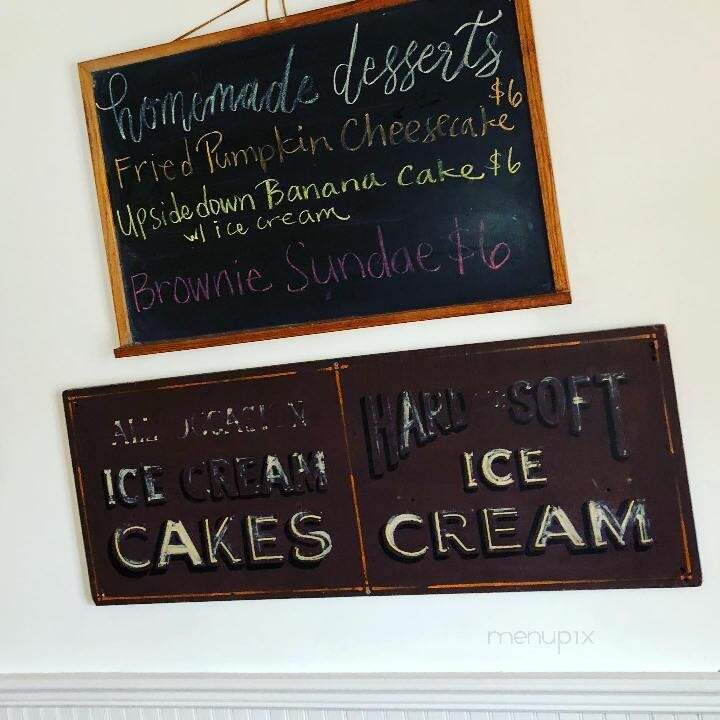 homemade desserts
$6
Fried Pumpkin Cheesecake
Upsidedown Banana Cake $6
w/ ice cream
Brownie Sundae $6
ALL OCCASION
ICE CREAM
CAKES
HARD SOFT
ICE
CREAM
menupix